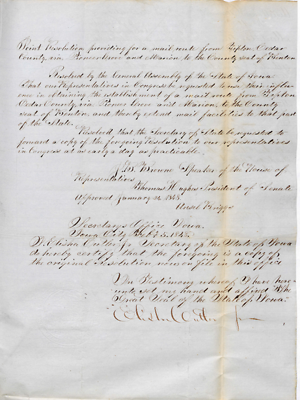 Joint Resolution providing for a mail route from Tipton Cedar
County, via Pioneer Grove and Marion to the County seat of Benton
Resolved by the General Assembly of the State of Iowa
That our Representatives in Congress be requested to use their influ-
ence in obtaining the establishment of a mail route from Tipton
Cedar County, via Pioneer Grove and Marion, to the County
seat of Benton, and thereby extend mail facilities to that part
of the State.
Resolved, that the Secretary of State be requested to
forward a copy of the foregoing Resolution to our representatives
in Congress at as early a day as practicable.
Speaker of the House of
Representatives
Thomas Hughes President of Senate
Approved January 24, 1848
Ansel Briggs
Secretary's Office Iowa
Iowa City
I, Elisha Cutler Jr. Secretary of the State of Iowa
do hereby certify that the foregoing is a copy of
the original Resolution now on file in this office
In Testimony whereof I have here
unto set my hand and affixed the
Great Seal of the State of Iowa.
Elisha Cutler Jr